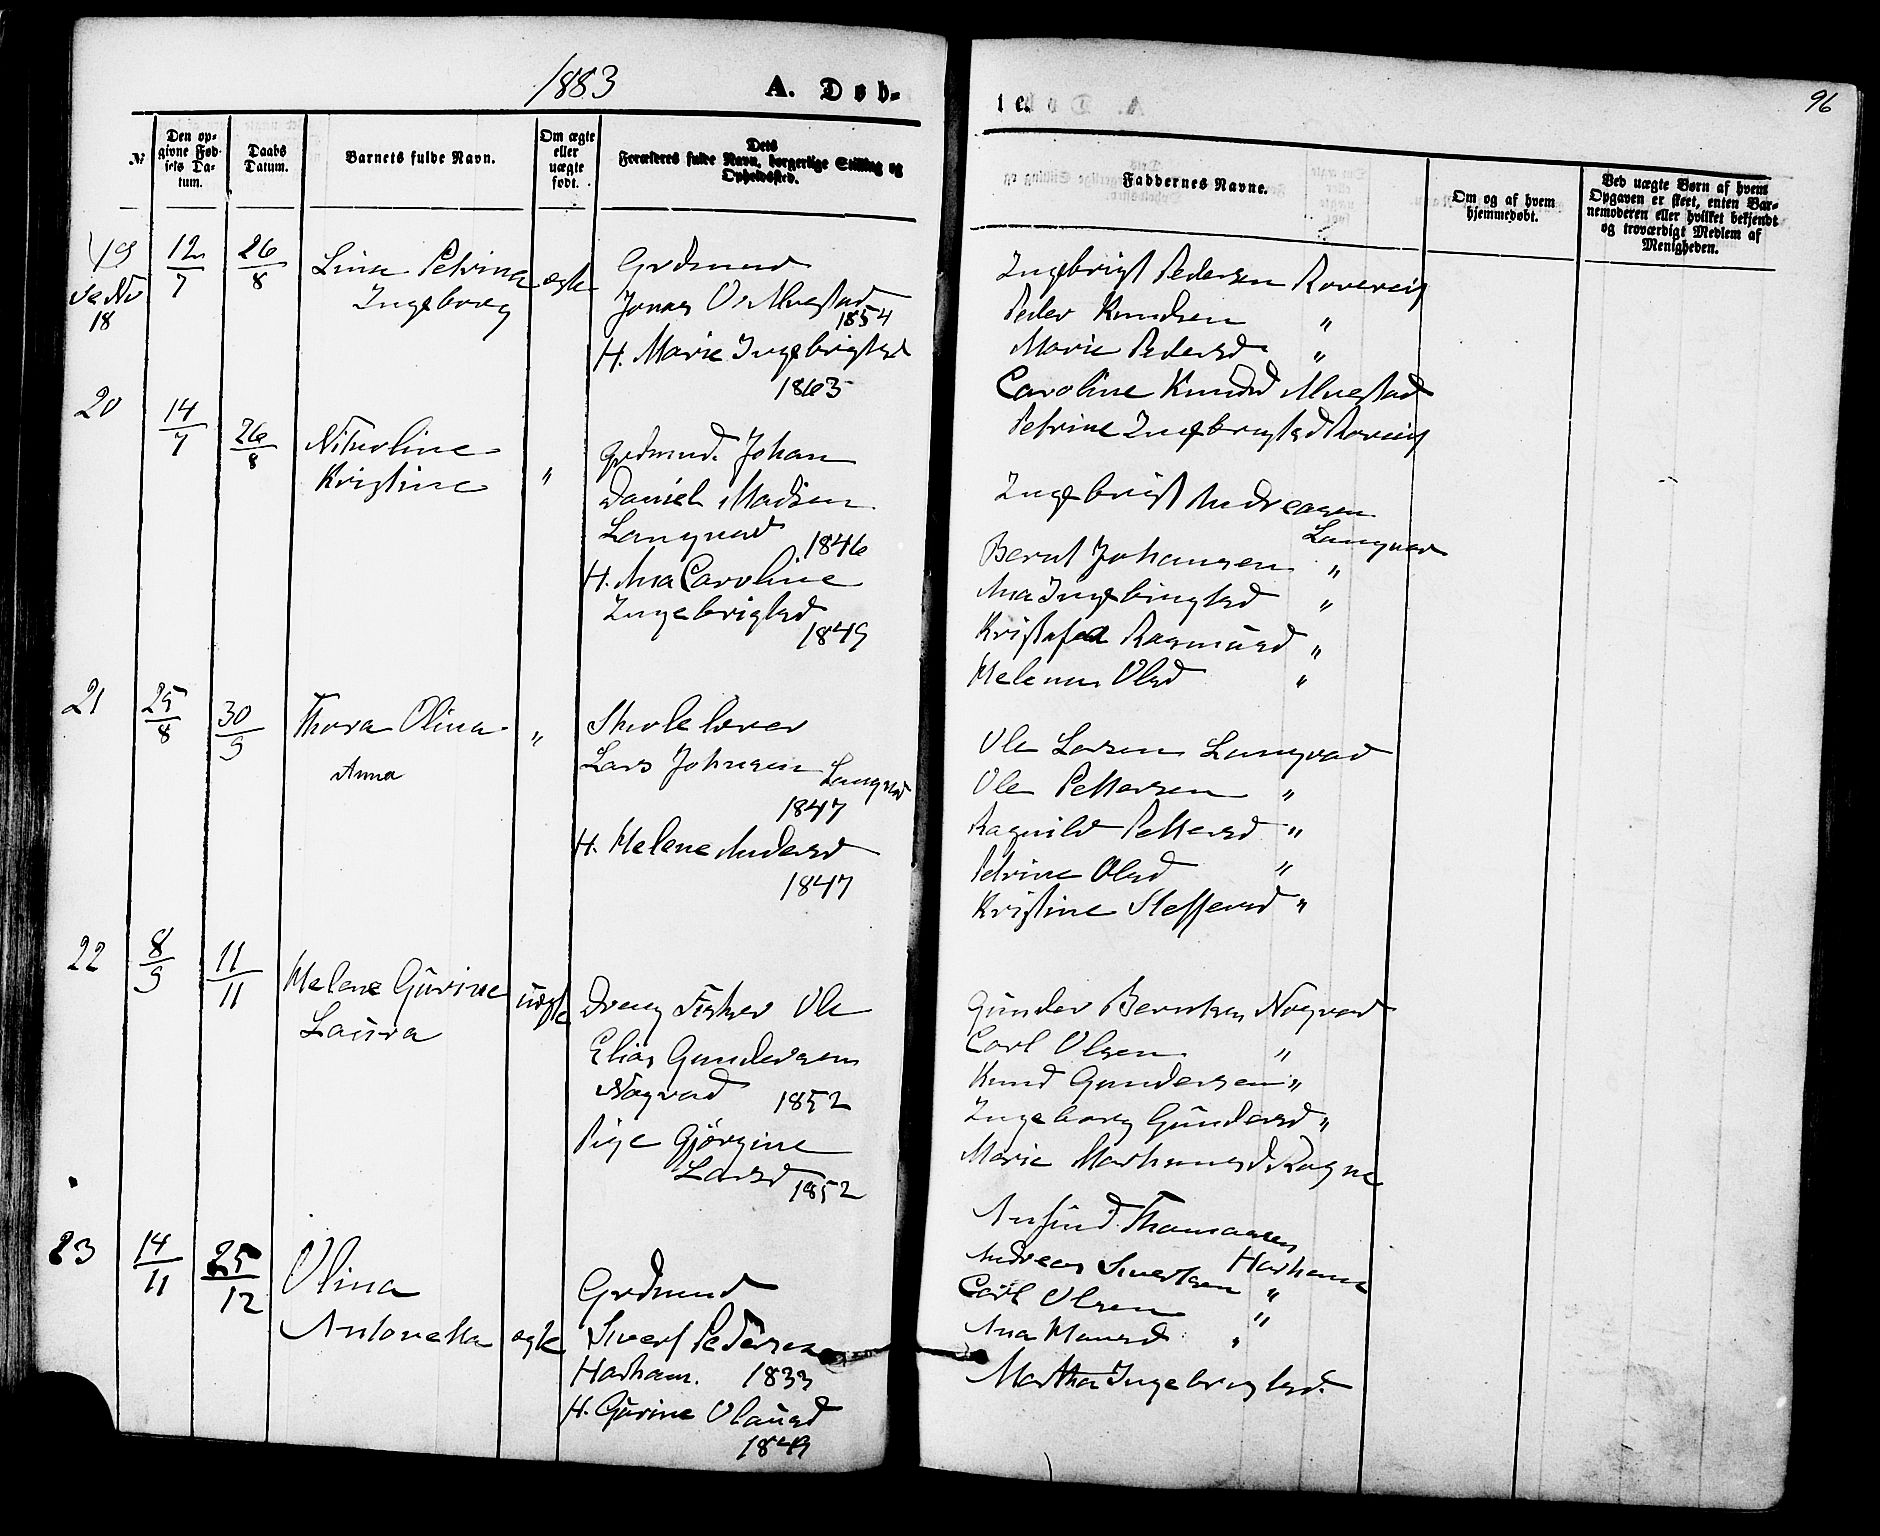 1883
A. Døb-
te.
96
№
Den op-
givne Fød-
sels Da-
tum.
Daabs
Datum.
Barnets fulde Navn.
Om ægte
eller
uægte
født.
Dets
Forældres fulde Navn, borgerlige Stilling og
Opholdssted.
Faddernes Navne.
Om og af hvem
hjemmedøbt.
Ved uægte Børn af hvem
Opgaven er skeet, enten Bar-
nemoderen eller hvilket bekjendt
og troværdigt Medlem af
Menigheden.
19
Se No
18
12/7
26/8
Lina Petrina
Ingeborg
ægte
Grdmand
Jonas O. Alvestad
1854
H. Marie Ingebrigtsd
1863
Ingebrigt Pedersen Roverig
Peder Knudsen "
Marie Pedersd "
Caroline Knudsd Alvestad
Petrine Ingebrigtsd
20
14/7
26/8
Nikoline
Kristine
"
grdmnd. Johan
Daniel Madsen
Langvad
1846
H. Ana Caroline
Ingebrigtsd
1849
Ingebrigt Andreasen
Langvad
Bernt Johansen "
Ana Ingebrigtsd "
Rasmusd "
Helene Olsd "
21
25/8
30/9
Thora Olina
Anna
"
Skolelærer
Lars Johnsen Langvad
1847
H. Helene Andersd
1847
Ole Larsen Langvad
Ole Pettersen "
Ragnild Pettersd "
Petrine Olsd "
Kristine Steffensd "
22
8/9
11/11
Helene Gurine
Laura
uægte
Dreng Fisker Ole
Elias Gundersen
Nogvad 1852
Pige Gjørgine
Larsd 1852
Gunder Berntsen Nogvad
Carl Olsen "
Knud Gundersen "
Ingeborg Gundersd "
Marie Rogne
23
14/11
25/12
Olina
Antonetta
ægte
Grdmand
Sivert Pedersen
Harham. 1833
H. Gurine Olausd
1849
Anfind Thomassen
Harham
Andreas Sivertsen "
Carl Olsen "
Ana Hansd "
Martha Ingebrigtsd.